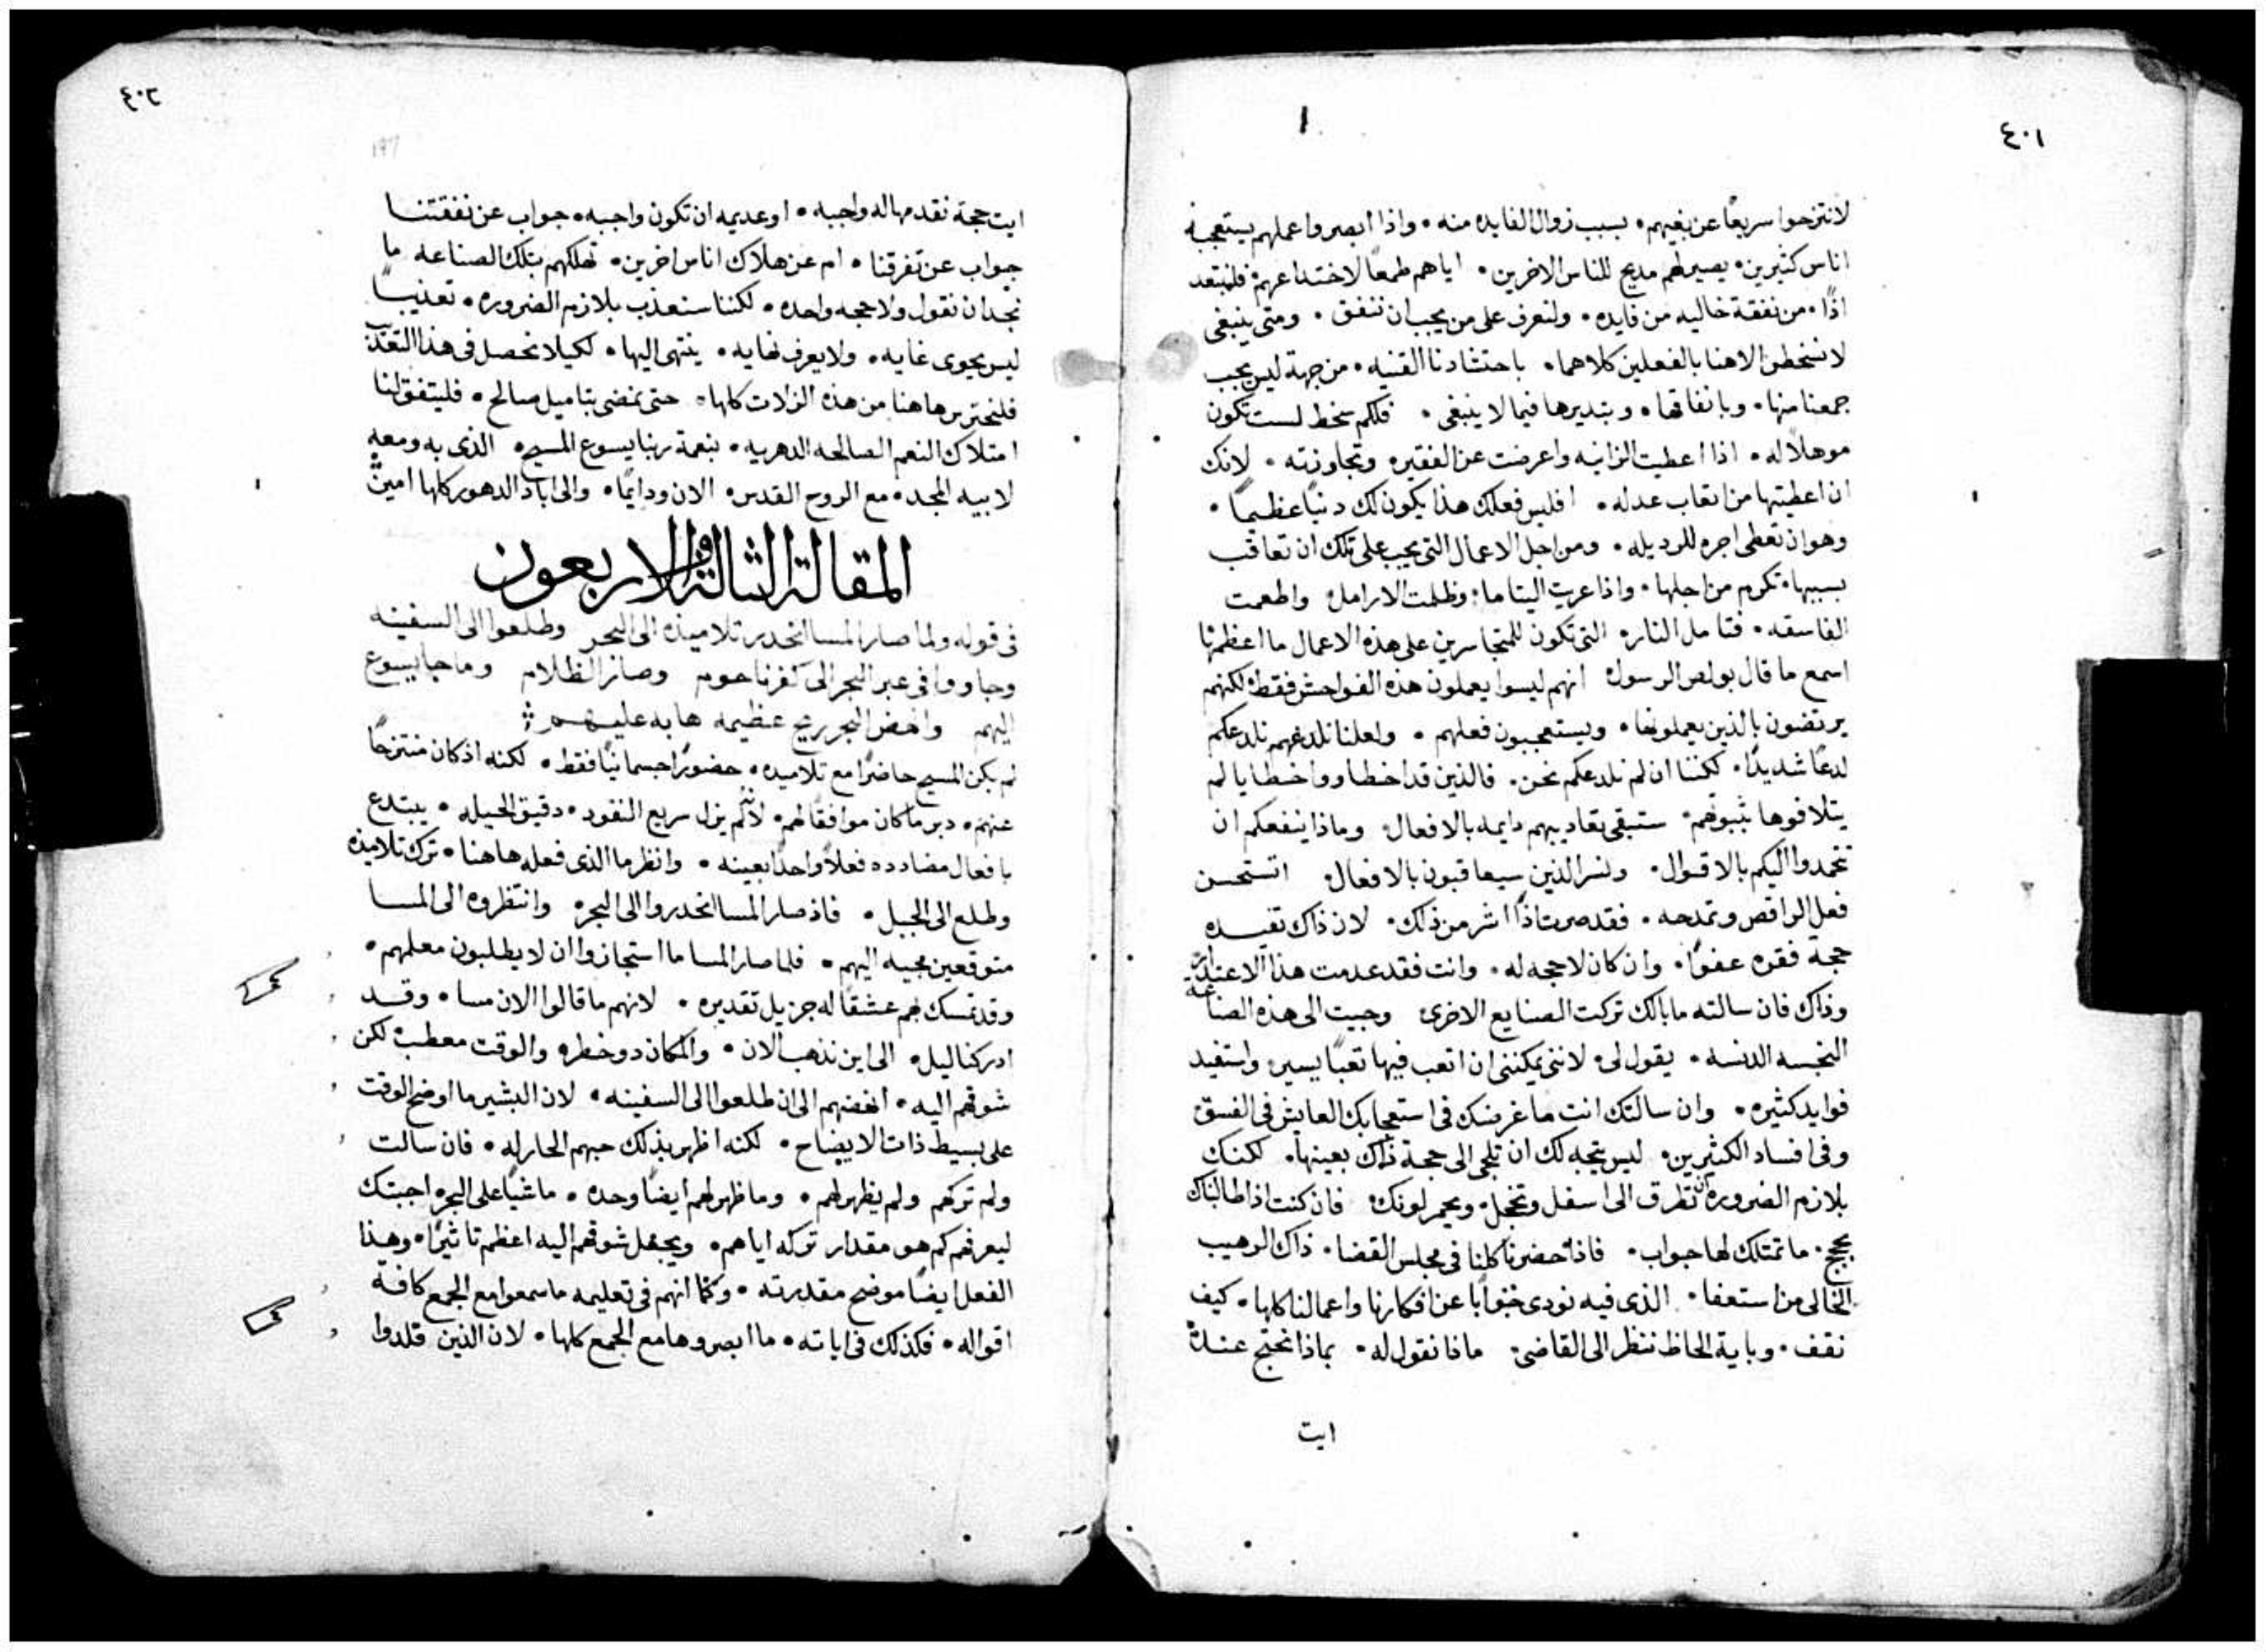 ٤٠١
لانتزحوا سريعًا عن بغيهم • بسبب زوال الفايده منه • واذا ابصروا عملهم يستعجبه
اناس كثيرين • يصير لهم مديح للناس الاخرين • اياهم طمعًا لاختداعهم • فلنبتعد
اذًا • من نفقة خاليه من فايده • ولنعرف على من يجب ان ننفق • ومتى ينبغى
لانسخط الاهنا بالفعلين كلاهما • باحتشادنا القنيه • من جهة ليس يجب
جمعنا منها • وبانفاقها • وبتديرها فيما لا ينبغى • فلكم سخط لست تكون
موهلاً له • اذا اعطيت الزانيه واعرضت عن الفقير • وتجاوزته • لانك
ان اعطيتها من اتعاب عدله • افليس فعلك هذا يكون لك دنبًا عظيمًا •
وهو ان تعطى اجره للرديله • ومن اجل الاعمال التى يجب على تلك ان تعاقب
بسببها • تكرم من اجلها • واذا عريت اليتاما • وظلمت الارامل • واطعمت
الفاسقه • فتامل النار • التى تكون للمتجاسرين على هذه الاعمال ما اعظمها
اسمع ما قال بولص الرسول • انهم ليسوا يعملون هذه الفواحش فقط • لكنهم
يرتضون بالذين يعملونها • ويستعجبون فعلهم • ولعلنا نلدغهم نلدعكم
لدعًا شديدًا • لكننا ان لم نلدعكم نحن • فالذين قد اخطاوا واخطايا لم
يتلافوها بثبوتهم • ستبقى تعاديبهم دايمه بالافعال • وماذا ينفعكم ان
تخمدوا اليكم بالاقوال • ونسر الذين سيعاقبون بالافعال • اتستحسن
فعل الراقص وتمدحه • فقد صرت اذًا اشر من ذلك • لان ذاك تفيده
حجة فقره عفوًا • وان كان لا حجه له • وانت فقد عدمت هذا الاعتدار
وذاك فان سالته ما بالك تركت الصنايع الاخرى • وجيت الى هذه الصناعه
النجسه الدنسه • يقول لى • لاننى يمكننى ان اتعب فيها تعبًا يسير • واستفيد
فوايد كثيره • وان سالتك انت ما غرضك فى استعجابك العايش فى الفسق
وفى افساد الكثيرين • ليس يتجه لك ان تلجى الى حجة ذاك بعينها • لكنك
بلازم الضروره ان تطرق الى اسفل وتخجل • ويحمر لونك • فان كنت اذا طالبناك
بحجج • ما تمتلك لها جواب • فاذا حضرنا كلنا فى مجلس القضا • ذاك الرهيب
الخالى من استعفا • الذى فيه نودى جوابًا عن افكارنا واعمالنا كلها • كيف
نقف • وباية الحاظ ننظر الى القاضى • ماذا نقول له • بماذا نحتج عنده
ايت
٤٠٢
ايت حجة نقدمها له واجبه • او عديمه ان تكون واجبه • جواب عن نفقتنا
جواب عن تفرقنا • ام عن هلاك اناس اخرين • تهلكهم بتلك الصناعه • ما
نجد ان نقول ولا حجه واحده • لكننا سنعذب بلازم الضروره • تعذيبًا
ليس يحوى غايه • ولا يعرف نهايه • ينتهى اليها • لكيلا نحصل فى هذا التعذيب
فلنحترس هاهنا من هذه الزلات كلها • حتى نمضى بتاميل صالح • فليتفق لنا
امتلاك النعم الصالحه الدهريه • بنعمة ربنا يسوع المسيح • الذى به ومعه
لابيه المجد • مع الروح القدس • الان ودايمًا • والى اباد الدهور كلها امين
المقالة الثالثة والاربعون
فى قوله ولما صار المسا انحدر تلاميذه الى البحر وطلعوا الى السفينه
وجاووا فى عبر البحر الى كفرناحوم وصار الظلام وما جا يسوع
اليهم وانهض البحر ريح عظيمه هابه عليهم
لم يكن المسيح حاضرًا مع تلاميده • حضورًا جسمانيًا فقط • لكنه اذ كان منتزحًا
عنهم • دبر ما كان موافقًا لهم • لانه لم يزل سريع النفود • دقيق الحيله • يبتدع
بافعال مضادده فعلاً واحدًا بعينه • وانظر ما الذى فعله هاهنا • ترك تلاميذه
وطلع الى الجبل • فاذ صار المسا انحدروا الى البحر • وانتظروه الى المسا
متوقعين مجيه اليهم • فلما صار المسا ما استجازوا ان لا يطلبون معلمهم •
وقد تمسك بهم عشقًا له جزيل تقديره • لانهم ما قالوا الان مسا • وقد
ادركنا ليل • الى اين نذهب الان • والمكان دو خطر • والوقت معطب • لكن
شوقهم اليه • انهضهم الى ان طلعوا الى السفينه • لان البشير ما اوضح الوقت
على بسيط ذات الايضاح • لكنه اظهر بذلك حبهم الحار له • فان سالت
ولم تركهم ولم يظهر لهم • وما ظهر لهم ايضًا وحده • ماشيًا على البحر • اجبتك
ليعرفهم كم هو مقدار تركه اياهم • ويجعل شوقهم اليه اعظم تاثيرًا • وهذا
الفعل ايضًا موضح مقدرته • وكما انهم فى تعليمه ما سمعوا مع الجمع كافة
اقواله • فكذلك فى اياته • ما ابصروها مع الجمع كلها • لان الذين قلدوا